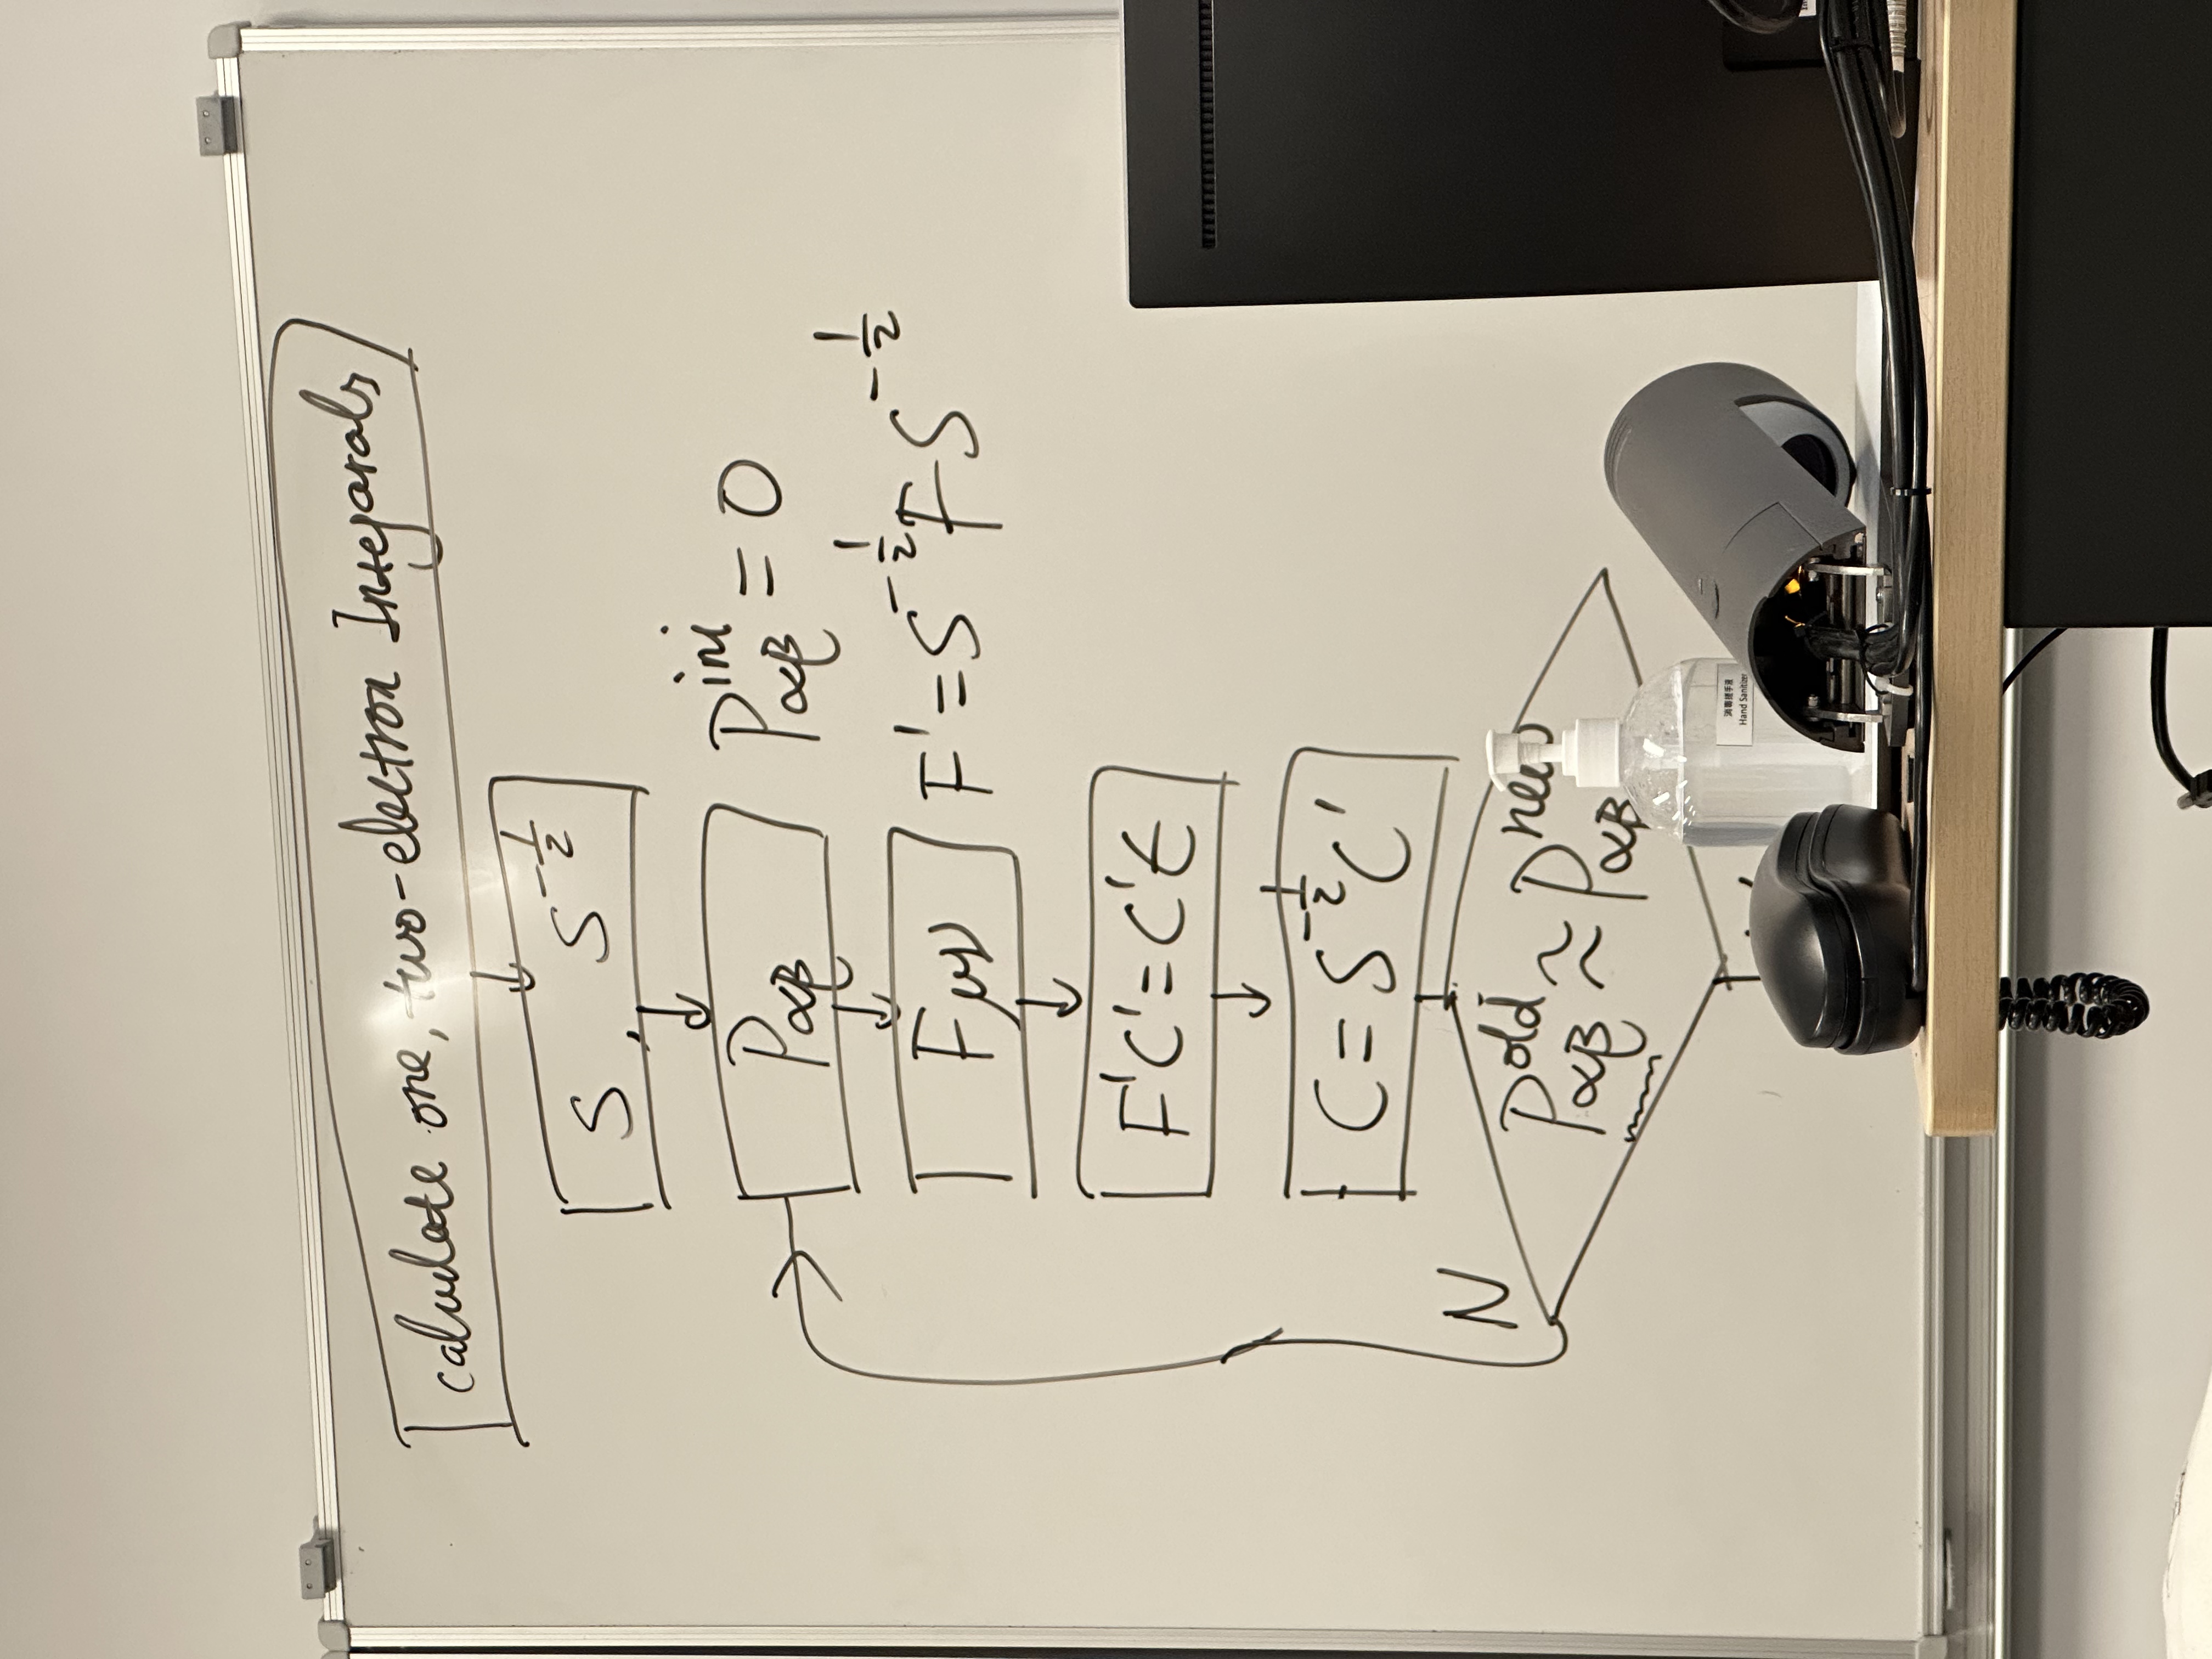 calculate one, two-electron Integrals
S S^{-1/2}
P_{αβ} P^{ini}_{αβ} = 0
F_{μν} F' = S^{-1/2} F S^{-1/2}
F'C' = C'ε
C = S^{-1/2} C'
N
P^{old}_{αβ} ≈ P^{new}_{αβ}
消毒搓手液
Hand Sanitizer